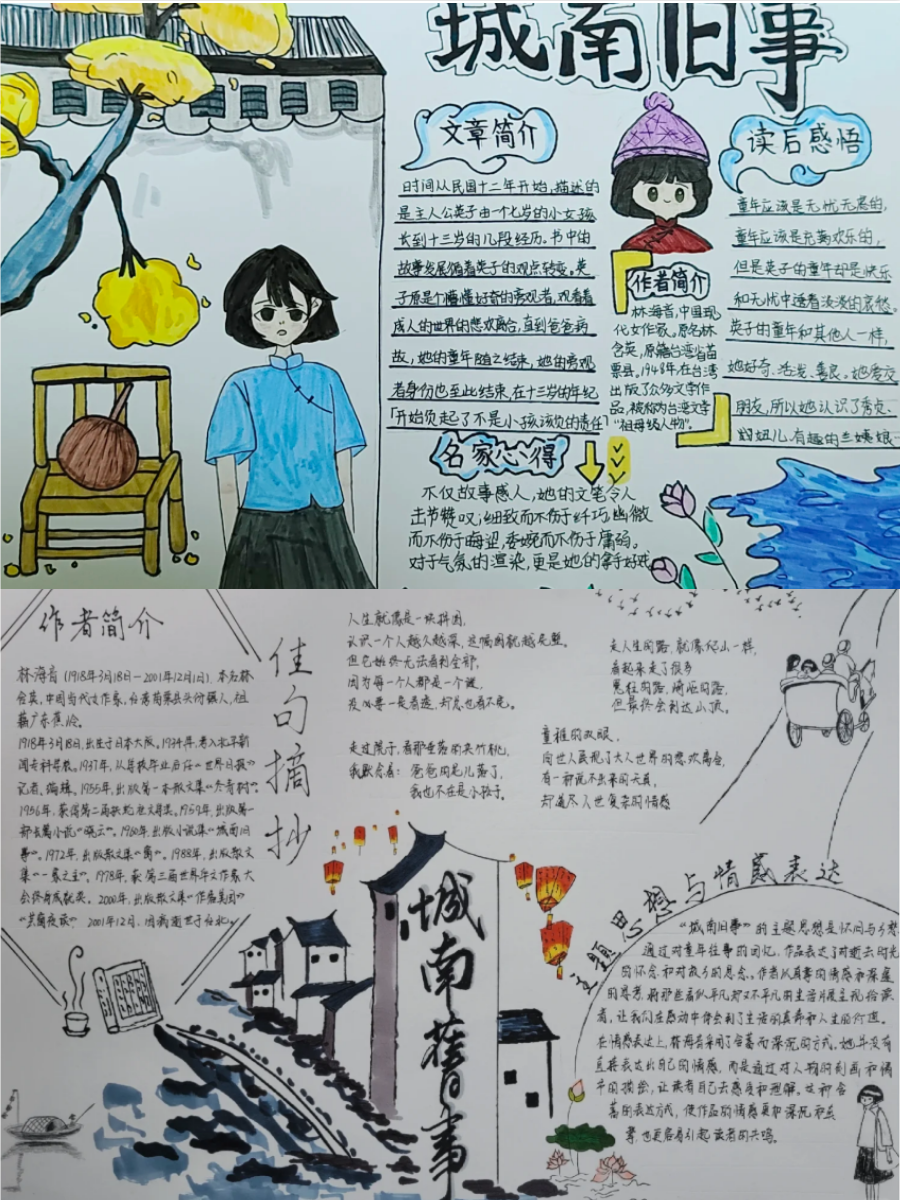 城南旧事
文章简介
时间从民国十二年开始,描述的
是主人公英子由一个七岁的小女孩
长到十三岁的几段经历。书中的
故事发展循着英子的观点转变。英
子原是个懵懂好奇的旁观者,观看着
成人的世界的悲欢离合,直到爸爸病
故,她的童年随之结束,她的旁观
者身份也至此结束,在十三岁的年纪
开始负起了不是小孩该负的责任
名家心得
不仅故事感人,她的文笔令人
击节赞叹;细致而不伤于纤巧,幽微
而不伤于晦涩,委婉而不伤于庸弱。
对于气氛的渲染,更是她的拿手好戏
作者简介
林海音,中国现
代女作家。原名林
含英,原籍台湾省苗
栗县。1948年在台湾
出版了众多文学作
品,被称为台湾文学
“祖母级人物”。
读后感悟
童年应该是无忧无虑的,
童年应该是充满欢乐的,
但是英子的童年却是快乐
和无忧中透着淡淡的哀愁。
英子的童年和其他人一样,
她好奇、活泼、善良。她爱交
朋友,所以她认识了秀贞、
妞儿,有趣的兰姨娘
作者简介
林海音(1918年3月18日-2001年12月1日),本名林
含英,中国当代文作家,台湾苗栗县头份镇人,祖
籍广东蕉岭。
1918年3月18日,出生于日本大阪。1934年,考入北平新
闻专科学校。1937年,从学校毕业后任《世界日报》
记者、编辑。1955年,出版第一本散文集《冬青树》。
1956年,获得第二届扶轮社文学奖。1959年,出版第一
部长篇小说《晓云》。1960年,出版小说集《城南旧
事》。1972年,出版散文集《窗》。1988年,出版散文
集《一家之主》。1998年,获第三届世界华文作家大
会终身成就奖。2000年,出版散文集《作客美国》
《芸窗夜读》 2001年12月,因病逝世于台北。
佳句摘抄
人生就像是一块拼图,
认识一个人越久越深,这幅图就越完整。
但它始终无法看到全部,
因为每一个人都是一个谜,
没必要一定看透,却总也看不完。
走过院子,看那垂落的夹竹桃,
我默念着: 爸爸的花儿落了,
我也不在是小孩子。
走人生的路,就像爬山一样,
看起来走了很多
冤枉的路,崎岖的路,
但最终会到达山顶。
童稚的双眼,
向世人展现了大人世界的悲欢离合,
有一种说不出来的天真,
却道尽人世复杂的情感
城南旧事
主题思想与情感表达
“城南旧事”的主题思想是怀旧与乡愁
通过对童年往事的回忆,作品表达了对逝去时光
的怀念和对故乡的思念。作者以真挚的情感和深邃
的思考,将那些看似平凡却又不平凡的生活片段呈现给读
者,让我们在感动中体会到了生活的真谛和人生的价值。
在情感表达上,林海音采用了含蓄而深沉的方式。她并没有
直接表达出自己的情感,而是通过对人物的刻画和情
节的描绘,让读者自己去感受和理解。这种含
蓄的表达方式,使作品的情感更加深沉和真
挚,也更容易引起读者的共鸣。